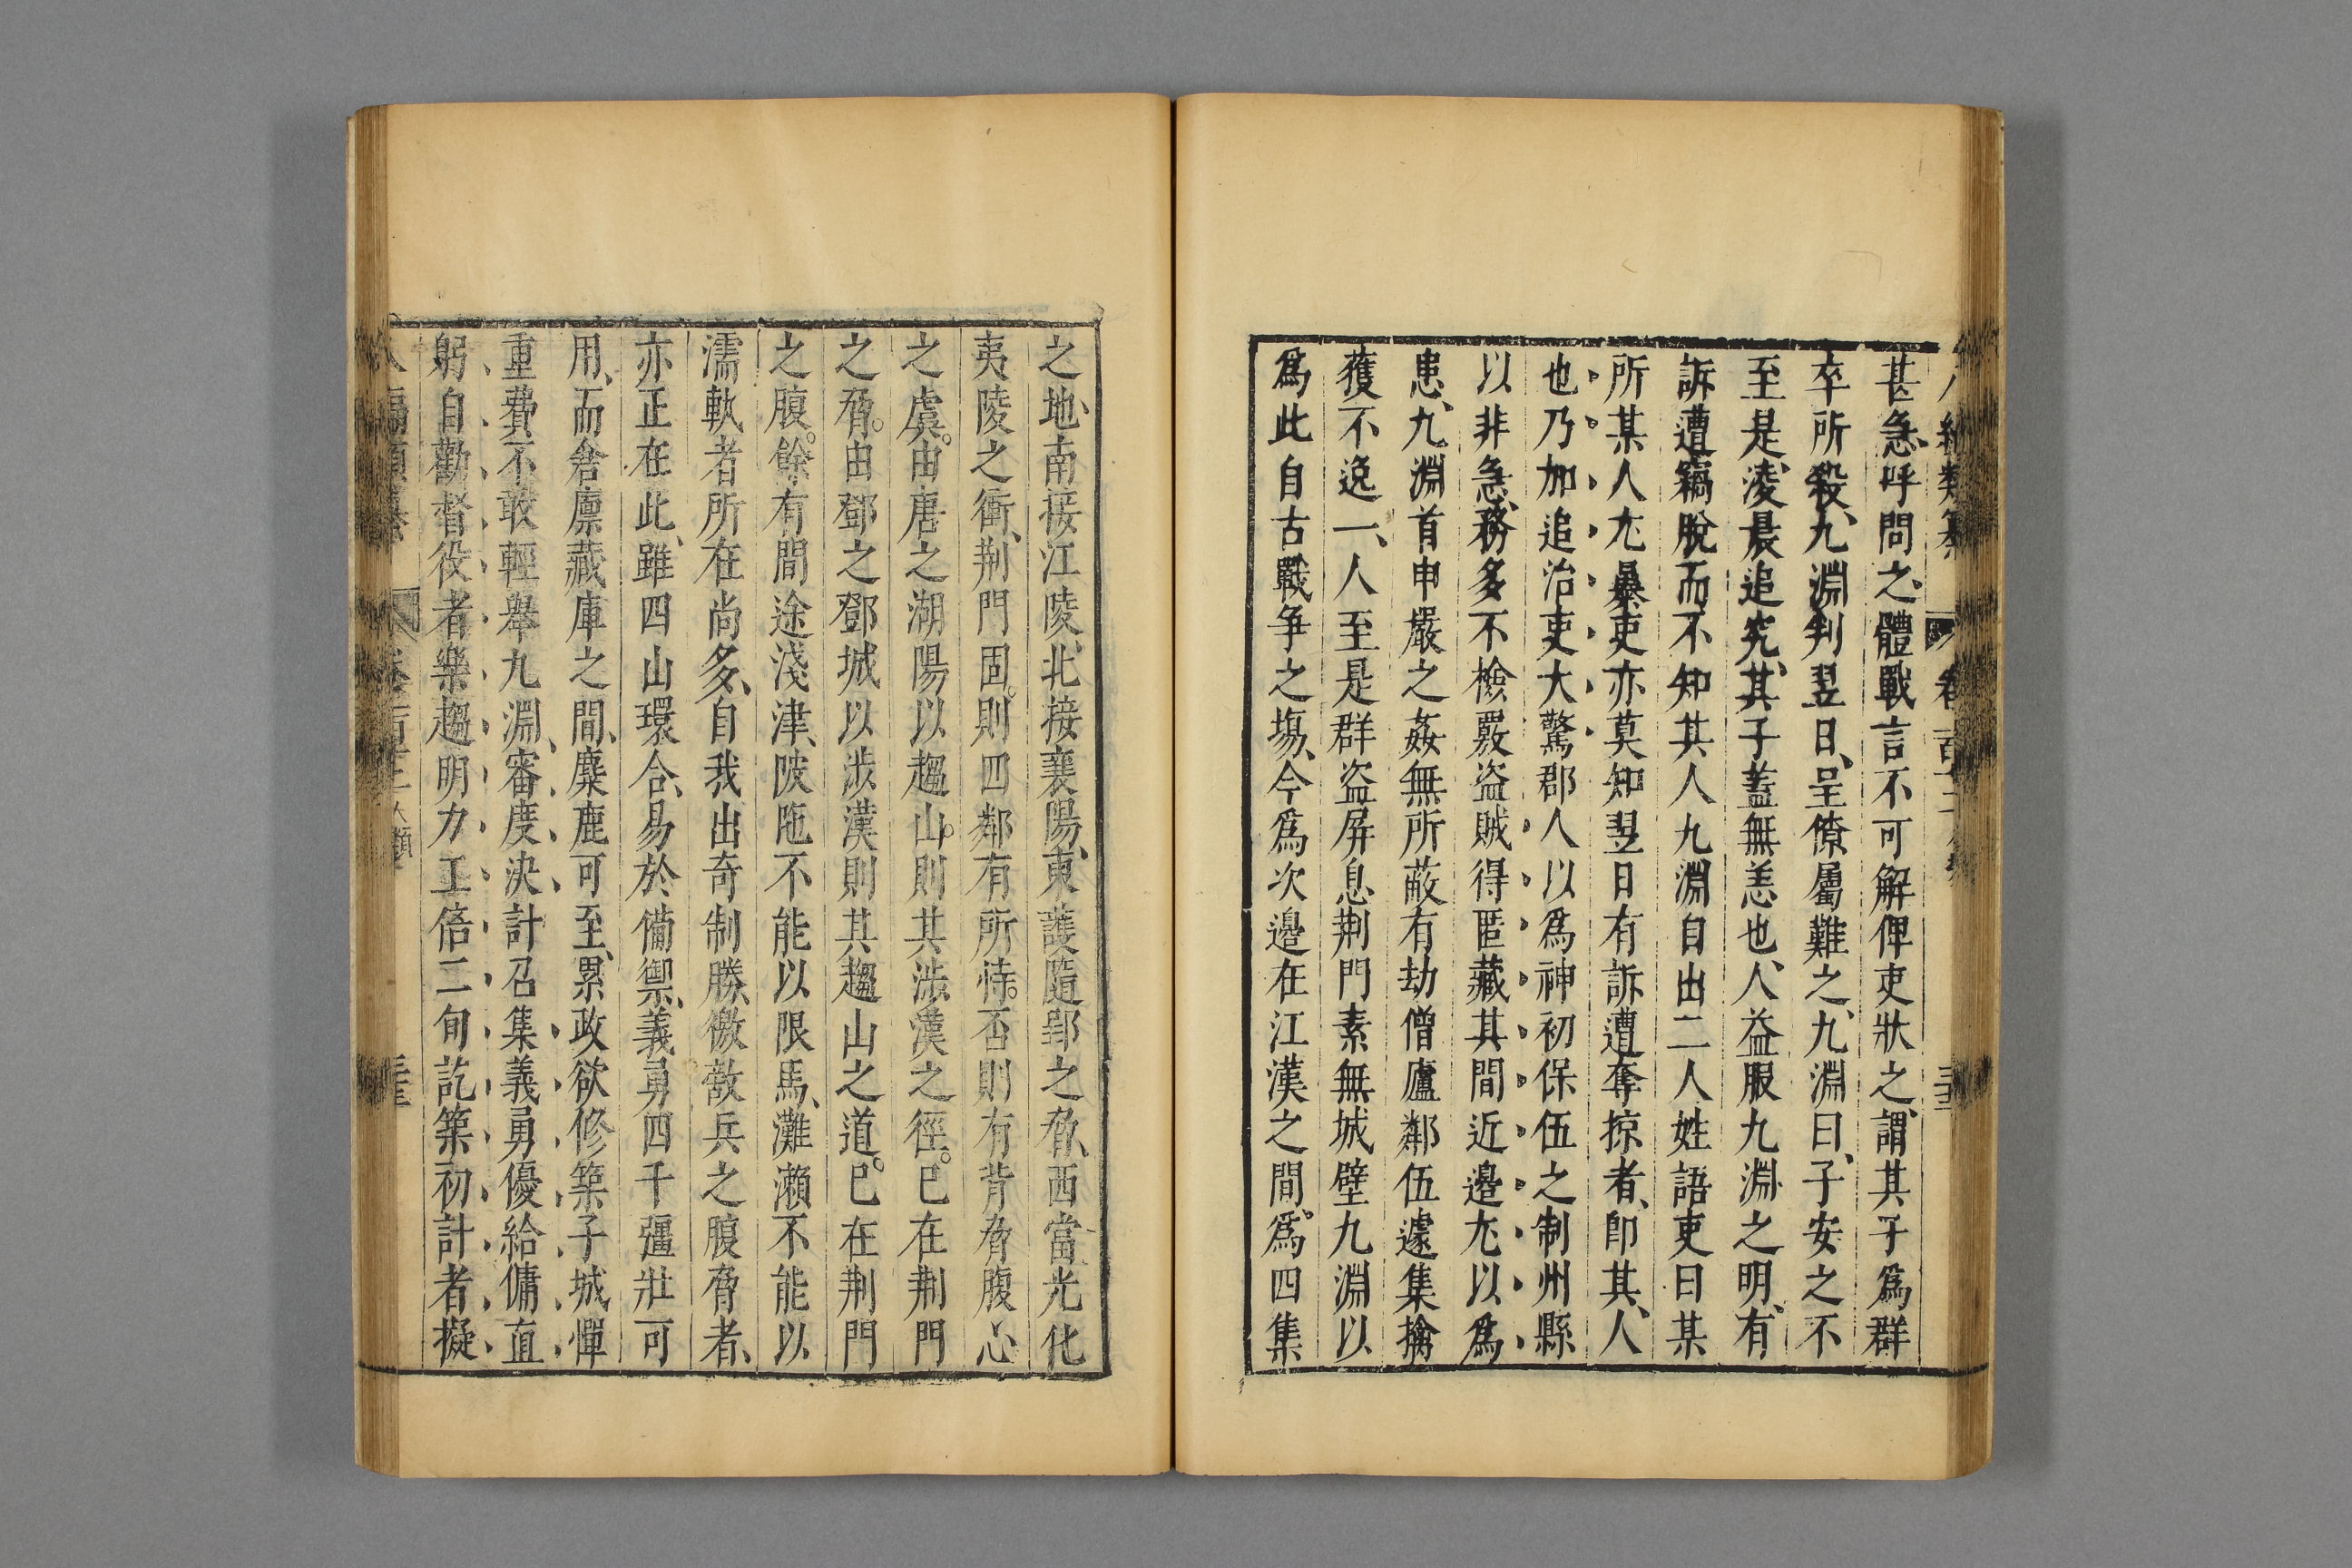 甚急、呼問之、體戰言不可解俾吏狀之、謂其子爲群
卒所殺、九淵判翌日、呈僚屬難之、九淵曰、子安之不
至是、淩晨追究、其子蓋無恙也、人益服九淵之明、有
訴遭竊脫而不知其人九淵自出二人姓語吏曰某
所某人尤暴吏亦莫知翌日有訴遭奪掠者、卽其人
也乃加追治吏大驚郡人以爲神初保伍之制州縣
以非急、務多不檢覈盜賊得匿藏其間近邊尤以爲
患、九淵首申嚴之姦無所蔽有劫僧廬鄰伍遽集擒
獲不逸一、人至是群盜屏息荆門素無城壁九淵以
爲此自古戰爭之塲、今爲次邊在江漢之間、爲四集
之地、南接江陵、北接襄陽、東護隨郢之脅、西當光化
夷陵之衝、荆門固。則四鄰有所恃。否則有背脅腹心
之虞。由唐之湖陽以趨山。則其涉漢之徑。已在荆門
之脅。由鄧之鄧城以涉漢則其趨山之道。已在荆門
之腹。餘有間途淺津、陂陁不能以限馬、灘瀨不能以
濡軌者所在尚多、自我出奇制勝、徼敵兵之腹脅者、
亦正在此、雖四山環合、易於備禦、義勇四千彊壯可
用、而倉廪藏庫之間、麋鹿可至、累政欲修築子城憚
重費不敢輕舉九淵、審度決計召集義勇優給傭直
躬自勸督役者樂趨明力工倍二旬訖築初計者擬